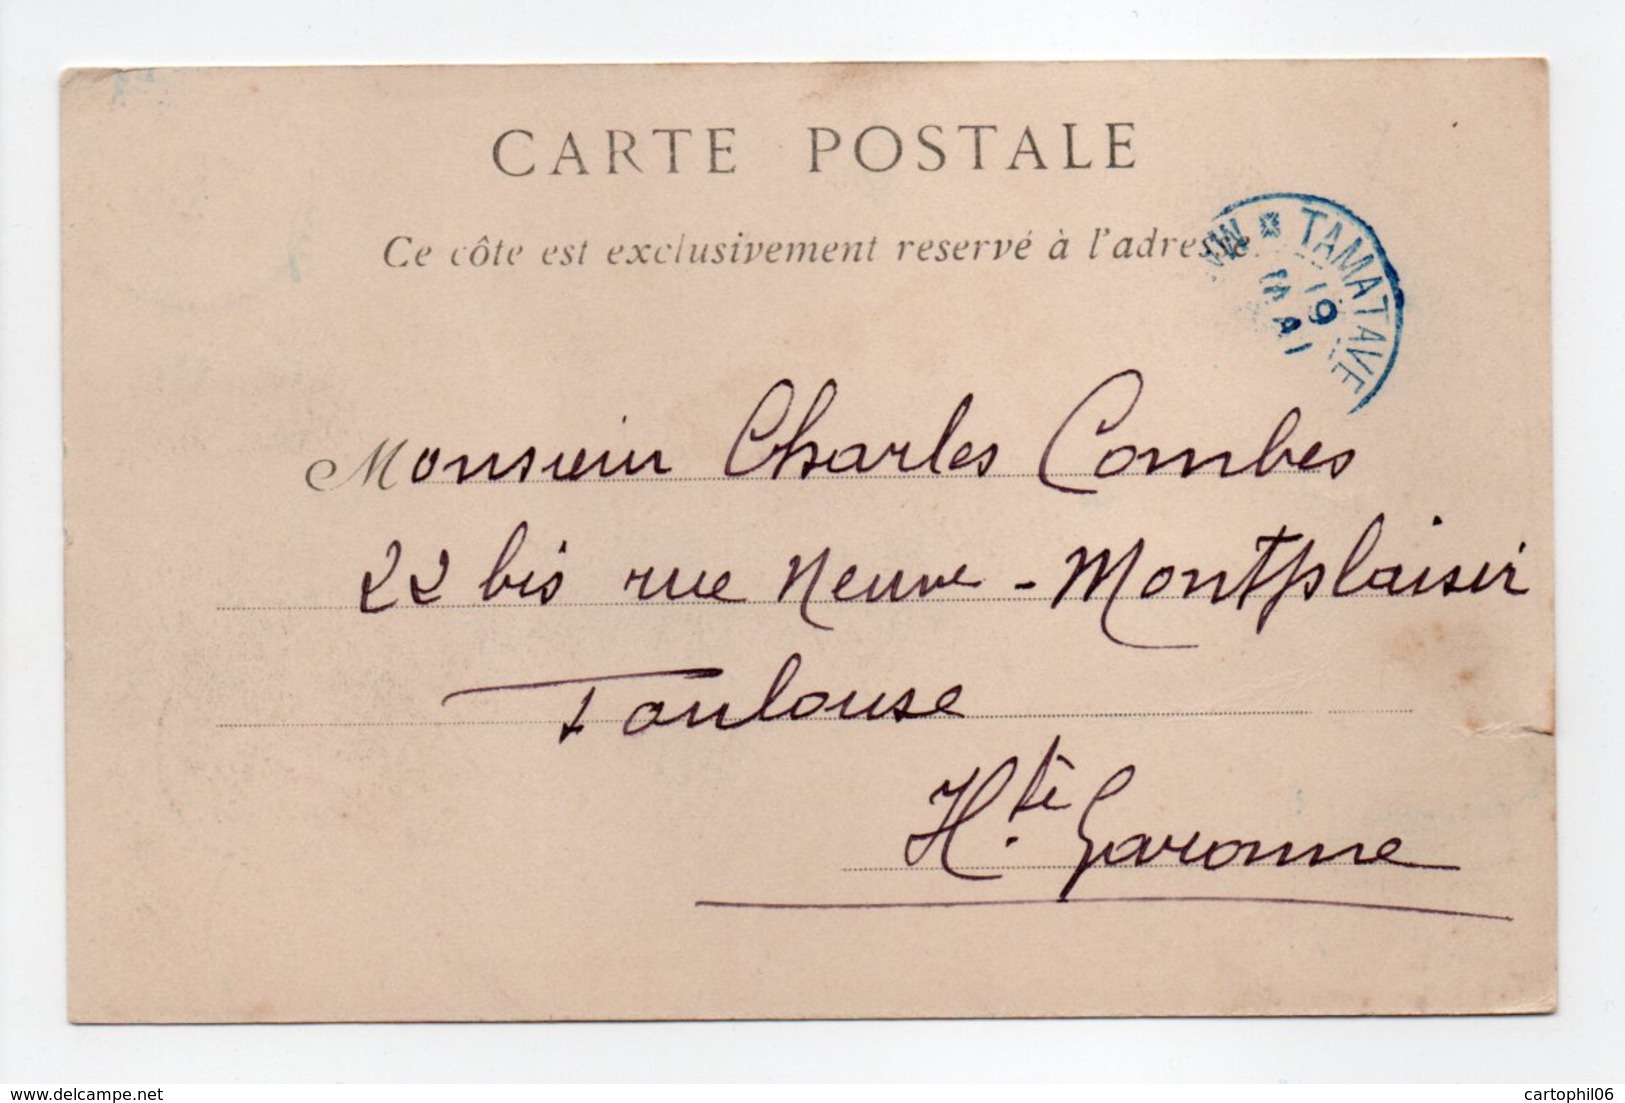 CARTE POSTALE
Ce côte est exclusivement reservé à l'adresse
TAMATAVE
19
Monsieur Charles Combes
22 bis rue Neuve - Montplaisir
Toulouse
Hte Garonne
cartophil06